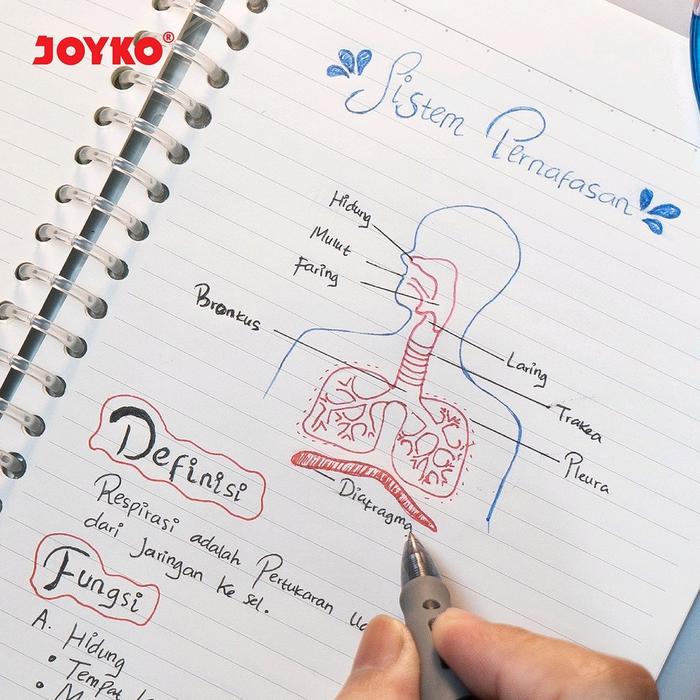 JOYKO®
Sistem Pernafasan
Hidung
Mulut
Faring
Bronkus
Laring
Trakea
Pleura
Diafragma
Definisi
Respirasi adalah Pertukaran
dari Jaringan ke sel.
Fungsi
A. Hidung
• Tempat